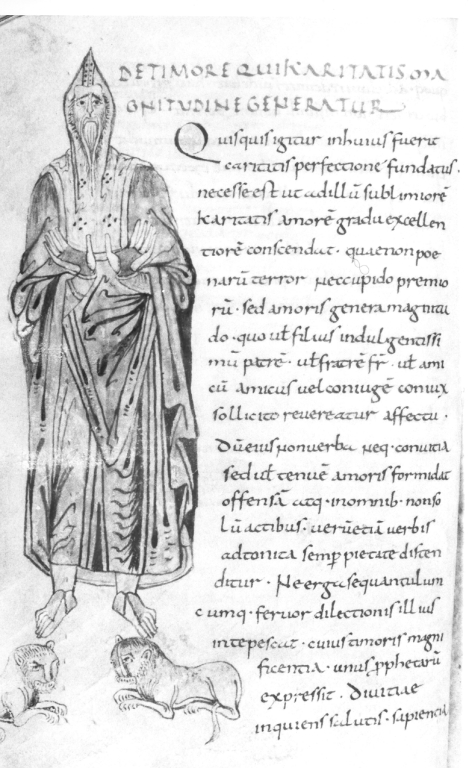 DETIMORE QUI KARITATIS MA
GNITUDINE GENERATUR
Quisquis igitur in huius fuerit
caritatis perfectionē fundatus.
necesse est ut ad illū sublimiorē
karitatis amorē gradū excellen
tiorē conscendat. quae non poe
narū terror nec cupido premio
rū. sed amoris genera magnitu
do. quo ul filius indulgentissi
mū patrē. ul fratrē fr. ul ami
cū amicus uel coniugē coniux
sollicito reuereatur affectu.
Dū eius non uerba neq. conuitia
sed ul tenuē amoris formidat
offensā atq. in omnib. non so
lū actibus. uerū etiā uerbis
adtonita semp pietate disten
ditur. Ne erga se quantulum
cumq. feruor dilectionis illius
intepescat. cuius timoris magni
ficentia. unus pphetarū
expressit. Diuitiae
inquiens salutis. sapientia